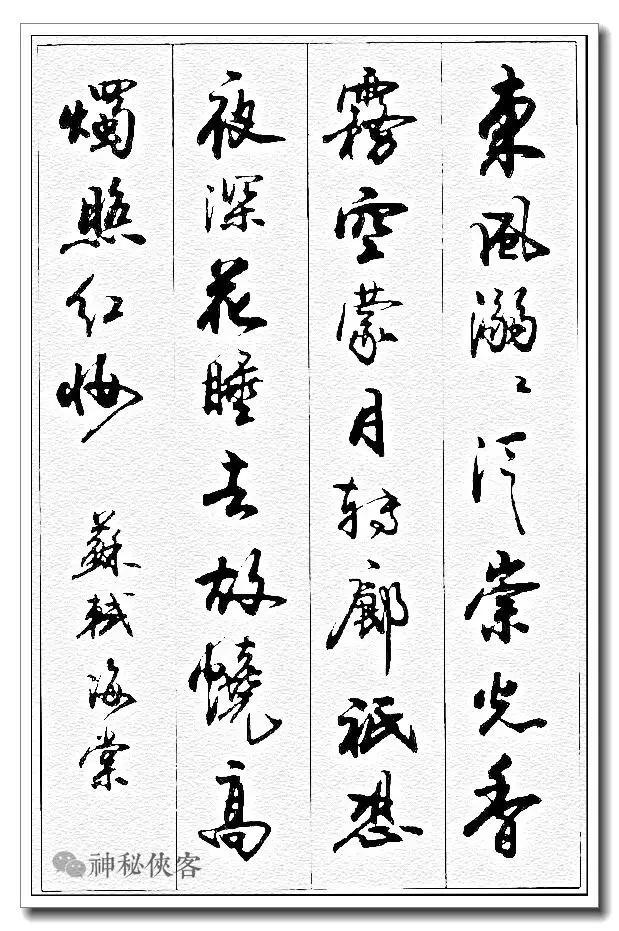 東風溺〻泛崇光香
霧空濛月轉廊祇恐
夜深花睡去故燒高
燭照紅妝
蘇軾海棠
神秘俠客